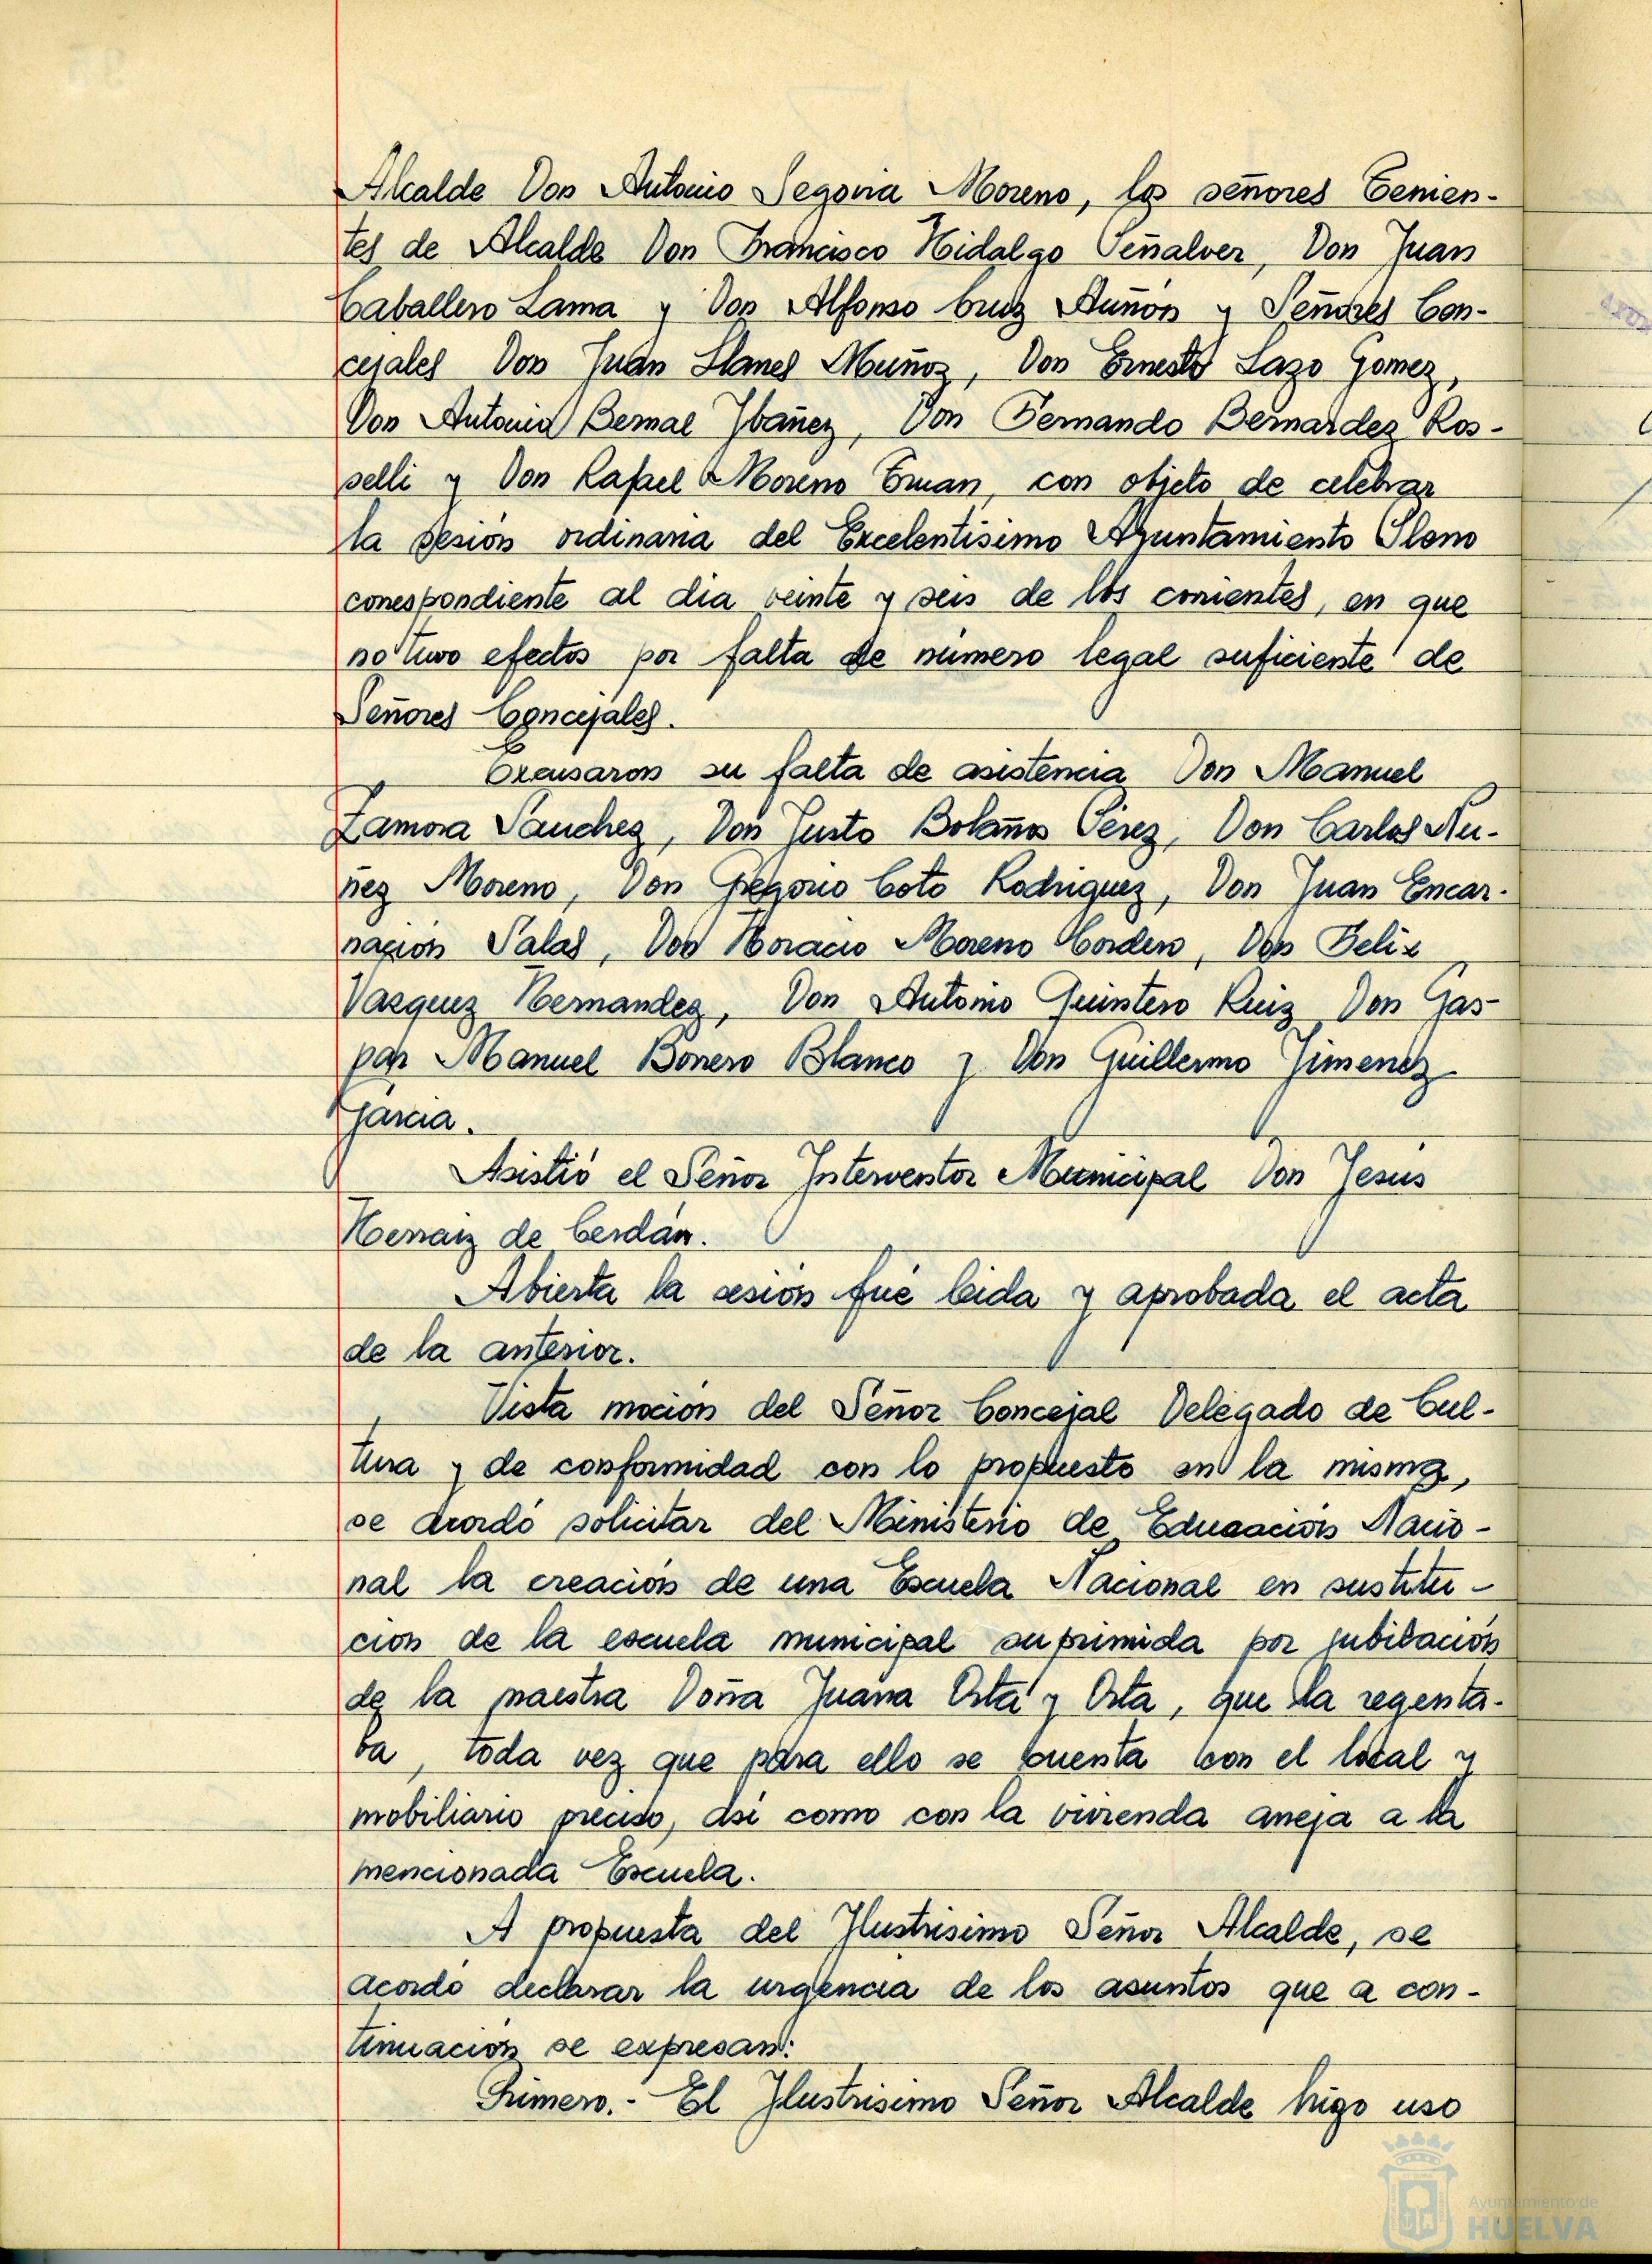 Alcalde Don Antonio Segovia Moreno, los señores Tenien-
tes de Alcalde Don Francisco Hidalgo Peñalver, Don Juan
Caballero Lama y Don Alfonso Cruz Auñón y Señores Con-
cejales Don Juan Llanes Muñoz, Don Ernesto Lazo Gomez,
Don Antonio Bernal Ybañez, Don Fernando Bernardez Ros-
selli y Don Rafael Moreno Eman, con objeto de celebrar
la sesión ordinaria del Excelentísimo Ayuntamiento Pleno
correspondiente al dia veinte y seis de los corrientes, en que
no tuvo efectos por falta de número legal suficiente de
Señores Concejales.
Excusaron su falta de asistencia Don Manuel
Zamora Sanchez, Don Justo Bolaños Perez, Don Carlos Nu-
ñez Moreno, Don Gregorio Coto Rodriguez, Don Juan Encar-
nación Salas, Don Horacio Moreno Cordero, Don Felix
Vazquez Hernandez, Don Antonio Quintero Ruiz Don Gas-
par Manuel Borrero Blanco y Don Guillermo Jimenez
Garcia.
Asistió el Señor Interventor Municipal Don Jesús
Herraiz de Cerdán.
Abierta la sesión fué leida y aprobada el acta
de la anterior.
Vista moción del Señor Concejal Delegado de Cul-
tura y de conformidad con lo propuesto en la misma,
se acordó solicitar del Ministerio de Educación Nacio-
nal la creación de una Escuela Nacional en sustitu-
cion de la escuela municipal suprimida por jubilación
de la maestra Doña Juana Orta y Orta, que la regenta-
ba, toda vez que para ello se cuenta con el local y
mobiliario preciso, asi como con la vivienda aneja a la
mencionada Escuela.
A propuesta del Ylustrisimo Señor Alcalde, se
acordó declarar la urgencia de los asuntos que a con-
tinuación se expresan:
Primero.- El Ylustrisimo Señor Alcalde hizo uso
Ayuntamiento de
HUELVA